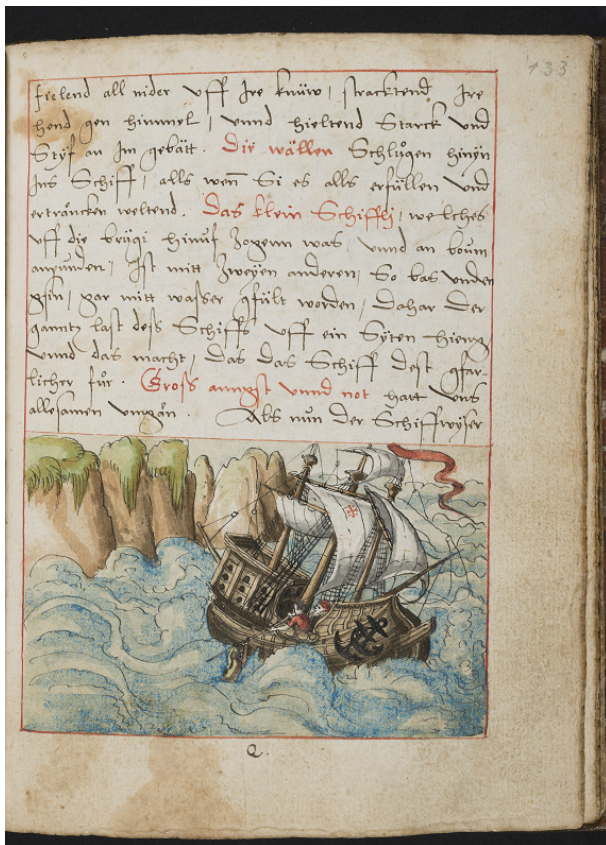 133
fielend all nider uff Ire knüw, stracktend Ire
hend gen himmel, unnd hieltend Starck und
Styf an Im gebätt. Die wällen Schlůgen hinyn
Ins Schiff, alls wen̄ Si es alls erfüllen und
ertråncken weltend. Das klein Schiffli, welches
uff die brügi hinuf zogenn was, unnd an boum
anpunden, Ist mitt zweyen anderen, So bas unden
gsin, gar mitt wasser gfült worden, Dahar Der
ganntz last dess Schiffs uff ein Syten hieng,
unnd das macht, Das das Schiff dest gfar-
licher fůr. Gross anngst unnd not hatt uns
allesamen umgån. Als nun der Schiffwyser
Q.